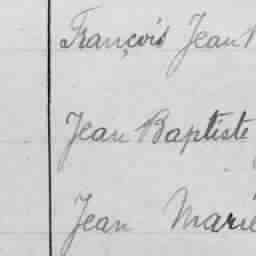 François Jean
Jean Baptiste
Jean Marie